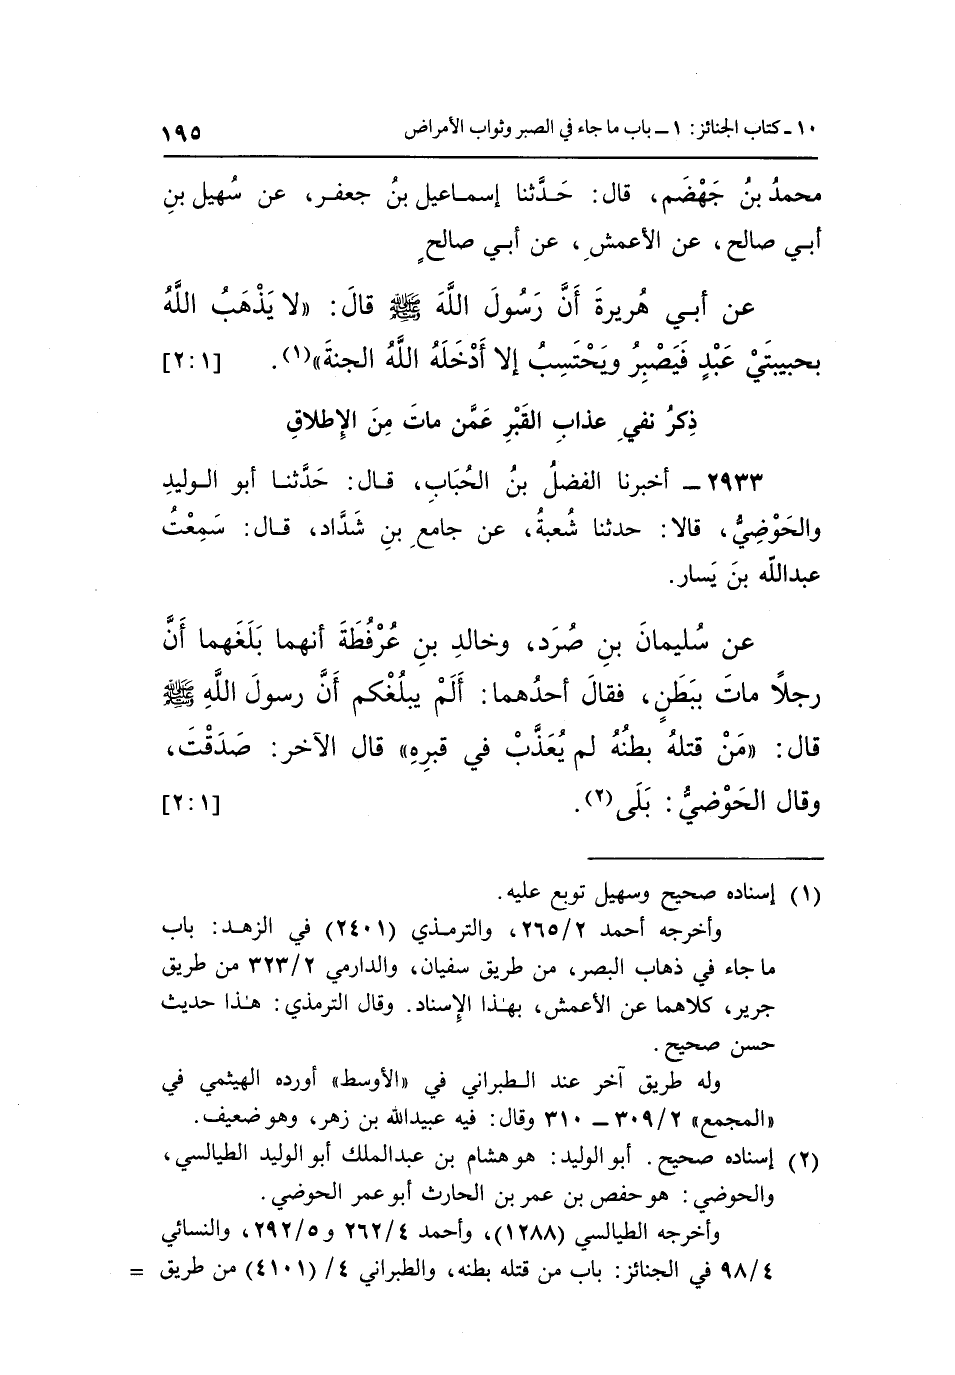 ١٠ ـ كتاب الجنائز: ١ ـ باب ما جاء في الصبر وثواب الأمراض ١٩٥
محمدُ بنُ جَهْضَم، قال: حَدَّثنا إسماعيل بنُ جعفر، عن سُهيل بنِ
أبي صالح، عن الأعمشِ، عن أبي صالحٍ
عن أبي هُريرةَ أَنَّ رَسُولَ اللَّهَ ﷺ قالَ: «لا يَذْهَبُ اللَّهُ
بحبيبتَيْ عَبْدٍ فَيَصْبِرُ ويَحْتَسِبُ إلا أَدْخَلَهُ اللَّهُ الجنةَ»(١). [٢:١]
ذِكرُ نفيِ عذابِ القَبْرِ عَمَّن ماتَ مِنَ الإِطلاقِ
٢٩٣٣ ـ أخبرنا الفضلُ بنُ الحُبَاب، قال: حَدَّثنا أبو الوليدِ
والحَوْضِيُّ، قالا: حدثنا شُعبةُ، عن جامعِ بنِ شَدَّاد، قال: سَمِعْتُ
عبداللَّه بنَ يَسار.
عن سُليمانَ بنِ صُرَد، وخالدِ بنِ عُرْفُطَةَ أنهما بَلَغَهما أَنَّ
رجلًا ماتَ ببَطَنٍ، فقالَ أحدُهما: أَلَمْ يبلُغْكم أَنَّ رسولَ اللَّهِ ﷺ
قال: «مَنْ قتلهُ بطنُهُ لم يُعَذَّبْ في قبرِهِ» قال الآخر: صَدَقْتَ،
وقال الحَوْضيُّ: بَلَى(٢). [٢:١]
(١) إسناده صحيح وسهيل توبع عليه.
وأخرجه أحمد ٢/٢٦٥، والترمذي (٢٤٠١) في الزهد: باب
ما جاء في ذهاب البصر، من طريق سفيان، والدارمي ٢/٣٢٣ من طريق
جرير، كلاهما عن الأعمش، بهٰذا الإسناد. وقال الترمذي: هٰذا حديث
حسن صحيح.
وله طريق آخر عند الطبراني في «الأوسط» أورده الهيثمي في
«المجمع» ٢/٣٠٩ ـ ٣١٠ وقال: فيه عبيدالله بن زهر، وهو ضعيف.
(٢) إسناده صحيح. أبو الوليد: هو هشام بن عبدالملك أبو الوليد الطيالسي،
والحوضي: هو حفص بن عمر بن الحارث أبو عمر الحوضي.
وأخرجه الطيالسي (١٢٨٨)، وأحمد ٤/٢٦٢ و٥/٢٩٢، والنسائي
٤/٩٨ في الجنائز: باب من قتله بطنه، والطبراني ٤/ (٤١٠١) من طريق =